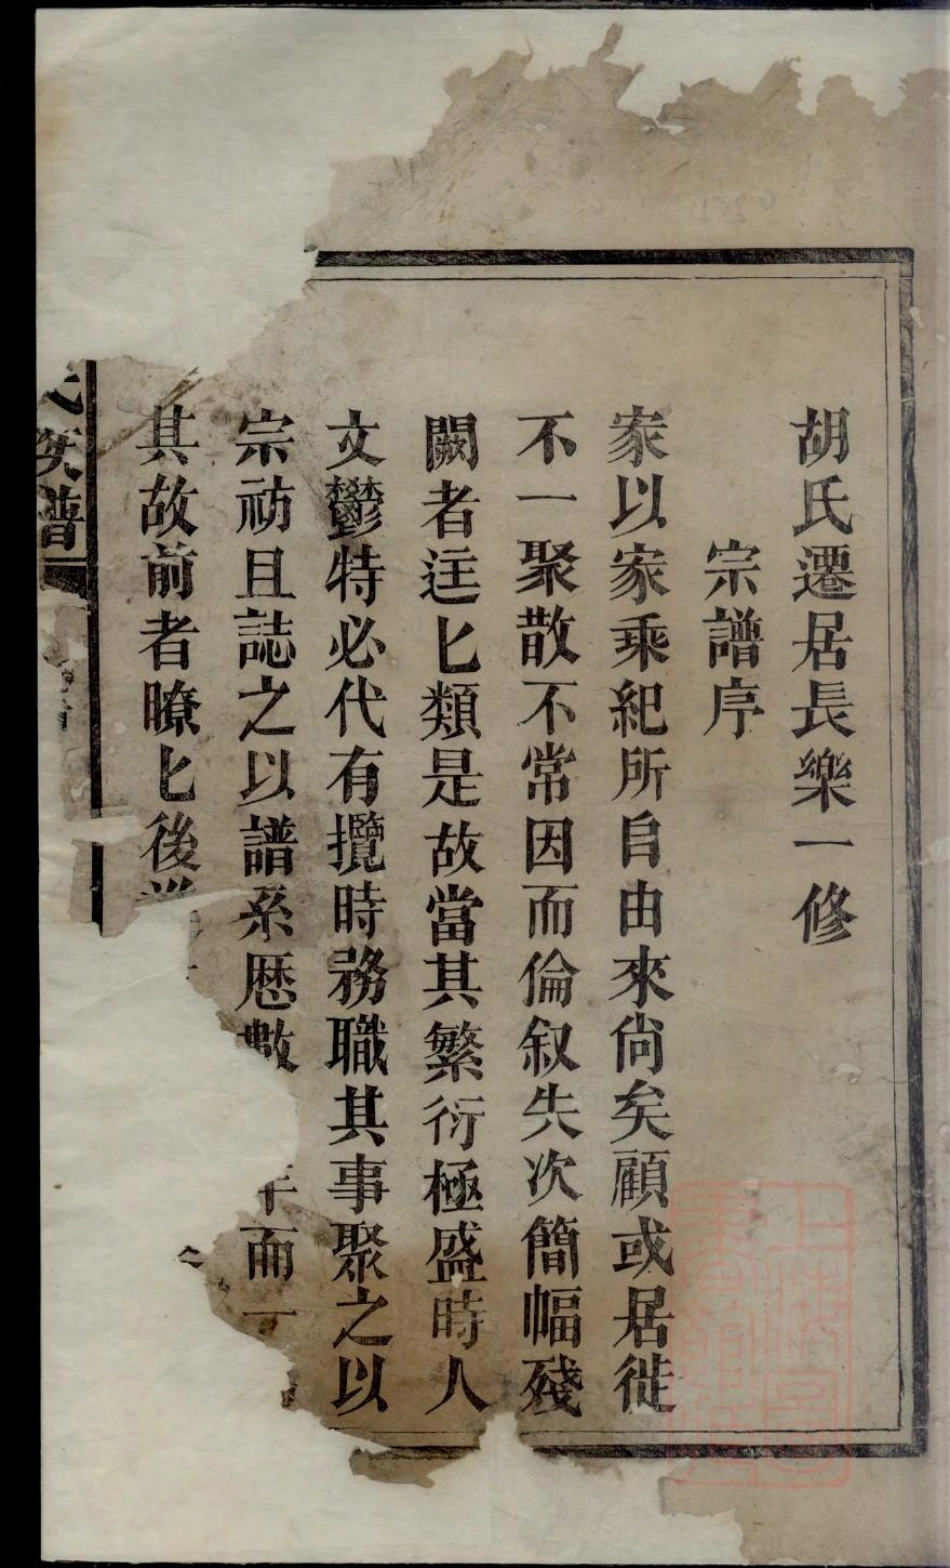 胡氏遷居長樂一修
宗譜序
家以家乘紀所自由來尙矣顧或居徙
不一聚散不常因而倫叙失次簡幅殘
闕者迋匕類是故當其繁衍極盛時人
文鬱特必代有攬時務職其事聚之以
宗祊且誌之以譜系厯數年而一
其故前者瞭匕後
氏族譜